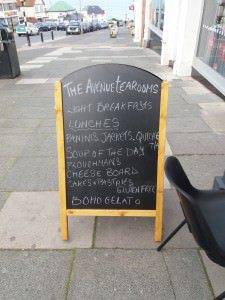 THE AVENUE TEAROOMS
LIGHT BREAKFASTS
LUNCHES
PANINIS, JACKETS, QUICHE
SOUP OF THE DAY
PLOUGHMANS
CHEESE BOARD
CAKES & PASTRIES
GLUTEN FREE
BOHO GELATO